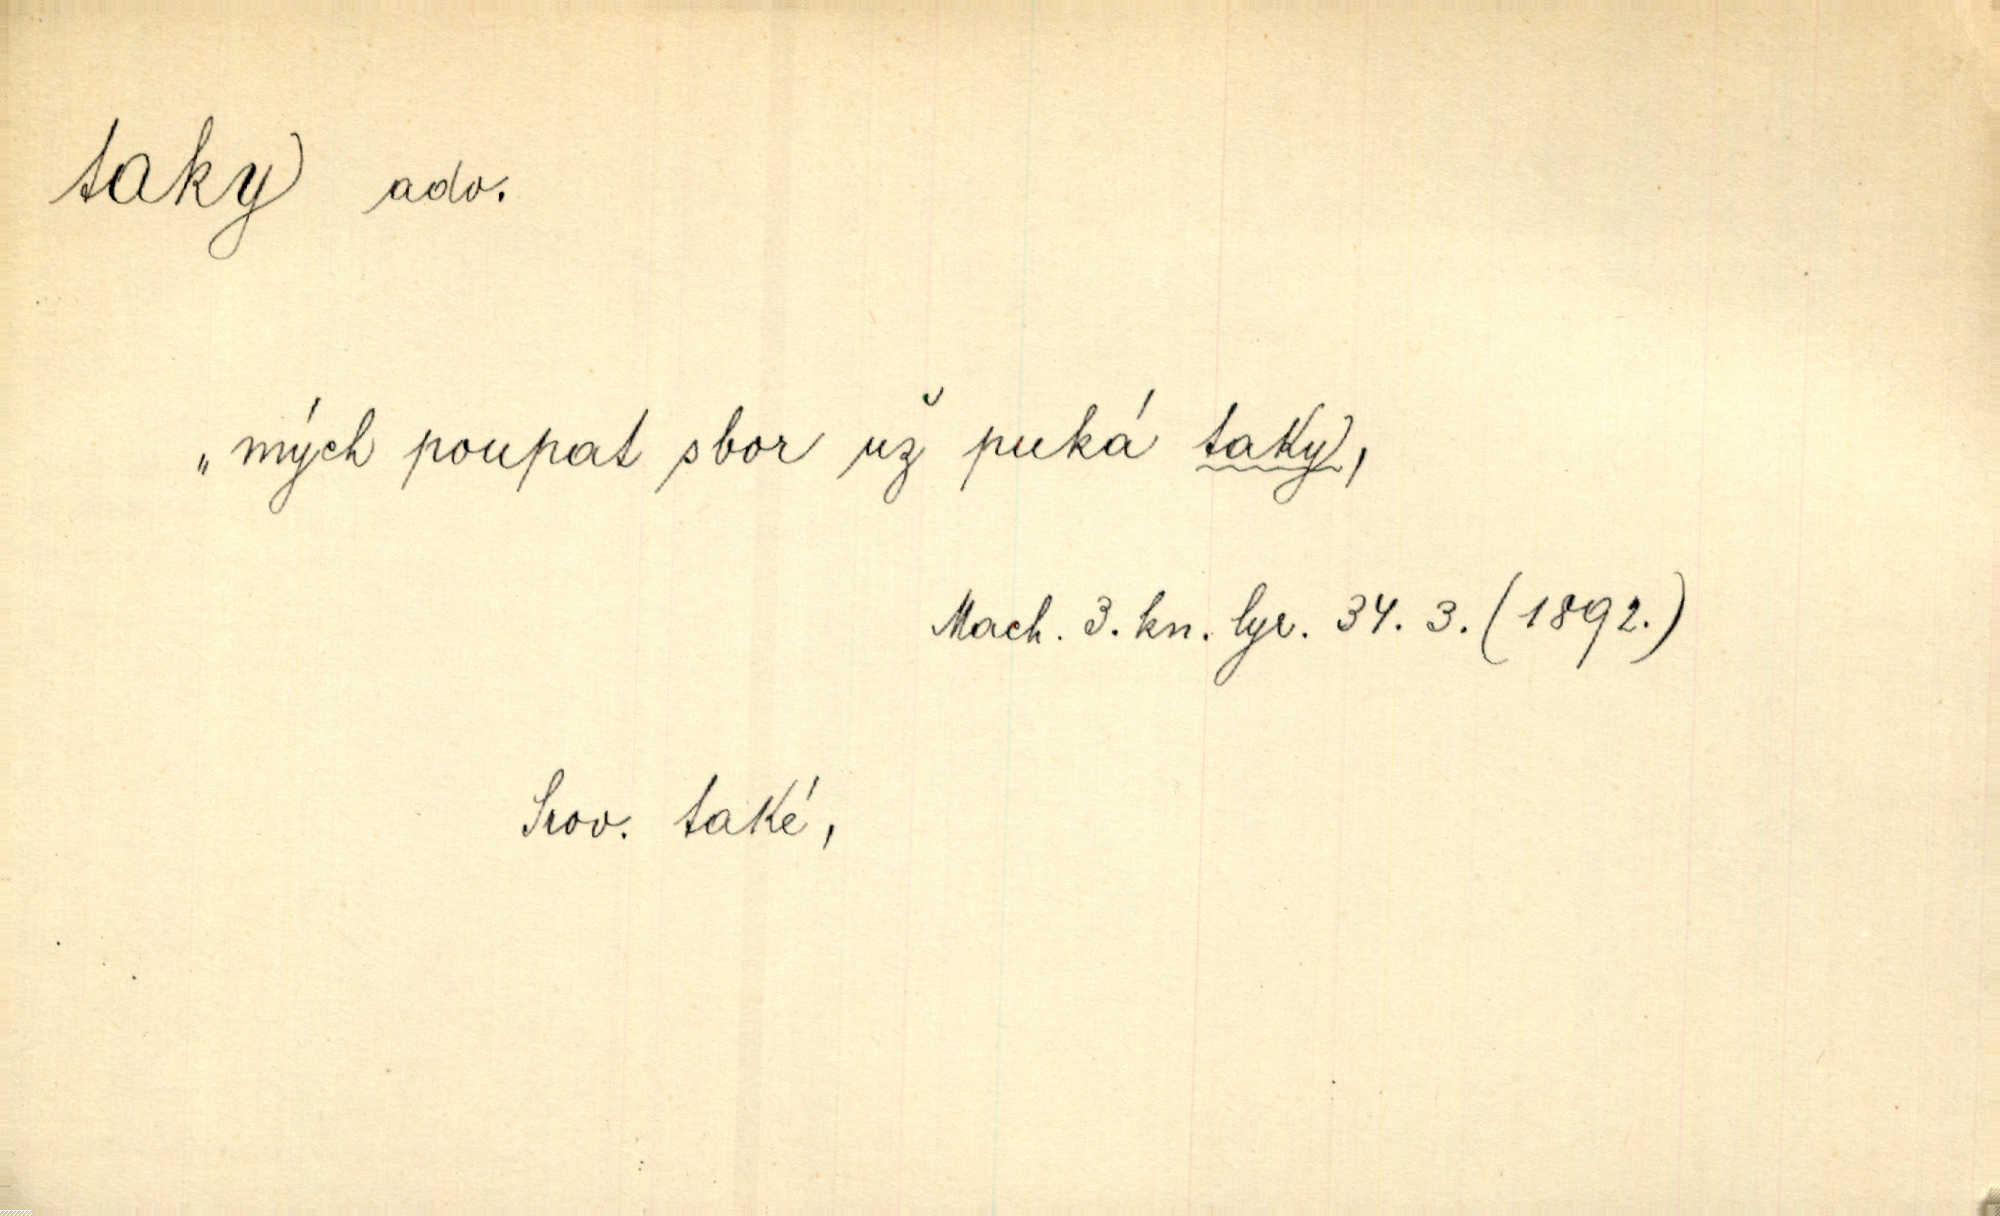 taky adv.
„mých poupat sbor už puká taky,
Mach. 3. kn. lyr. 34. 3. (1892.)
Srov. také,